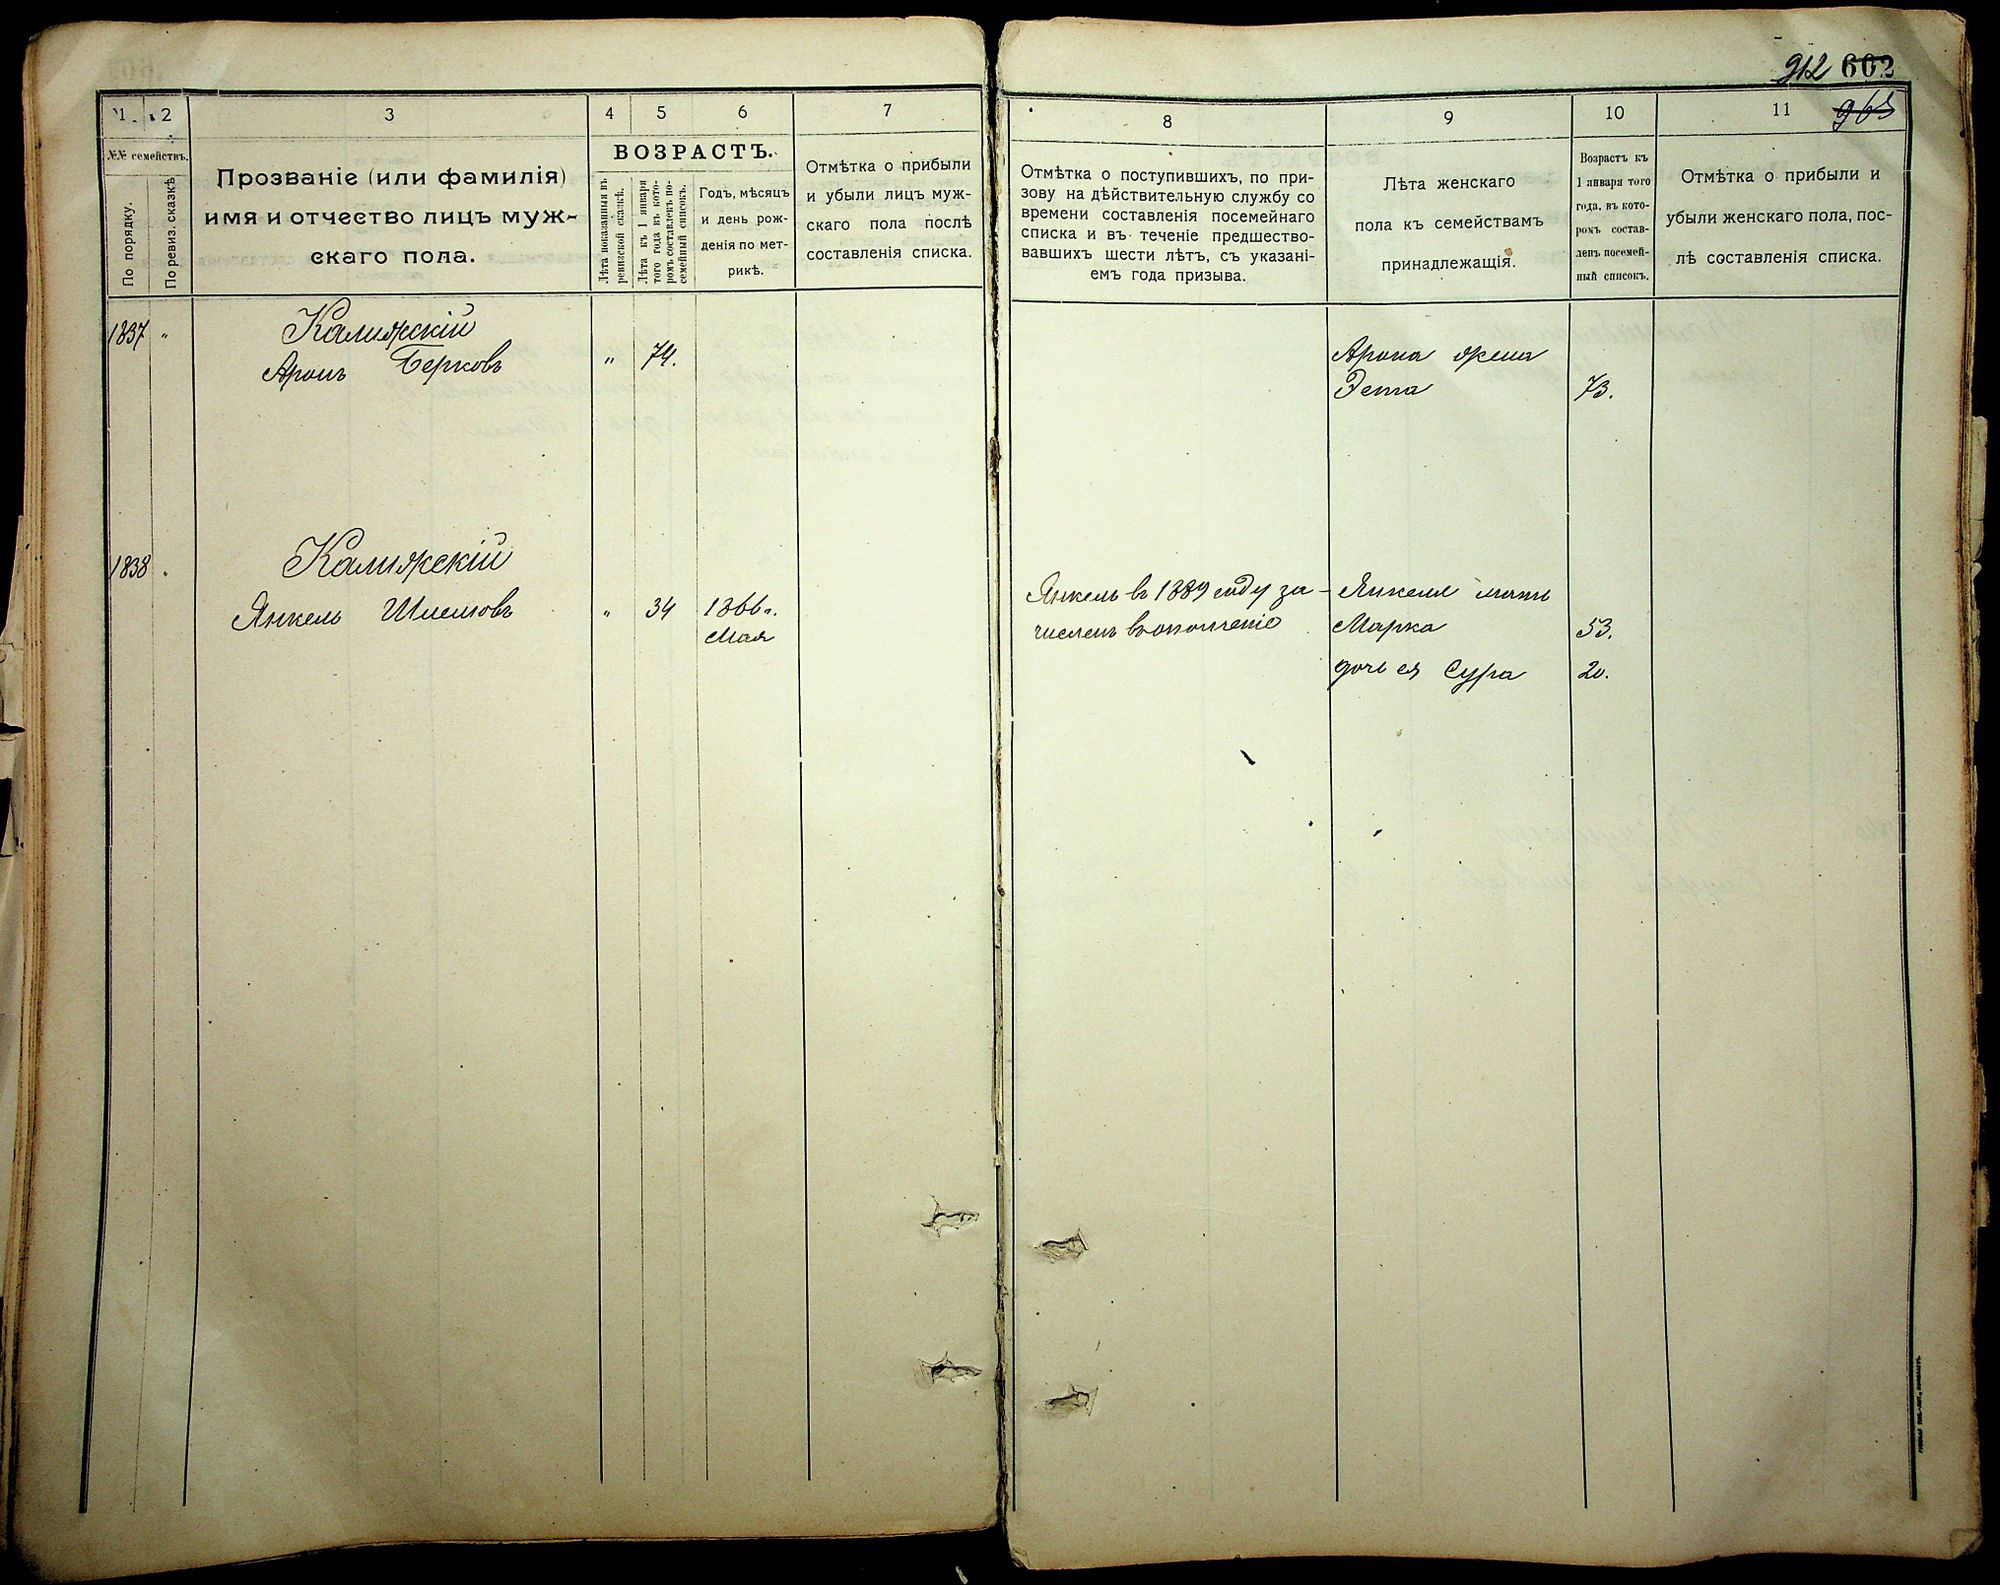 912 602
965
1 2 3 4 5 6 7
№№ семействъ.
По порядку.
По ревиз. сказкѣ
Прозваніе (или фамилія)
имя и отчество лицъ муж-
скаго пола.
ВОЗРАСТЪ.
Лѣта показанныя въ
ревизской сказкѣ.
Лѣта къ 1 января
того года въ кото-
ромъ составленъ по-
семейный списокъ.
Годъ, мѣсяцъ
и день рож-
денія по мет-
рикѣ.
Отмѣтка о прибыли
и убыли лицъ муж-
скаго пола послѣ
составленія списка.
1837 „ Калижскій
Аронъ Берковъ „ 74.
1838 „ Калижскій
Янкель Шлемовъ „ 34 1866 г.
Мая
8 9 10 11
Отмѣтка о поступившихъ, по при-
зову на дѣйствительную службу со
времени составленія посемейнаго
списка и въ теченіе предшество-
вавшихъ шести лѣтъ, съ указані-
емъ года призыва.
Лѣта женскаго
пола къ семействамъ
принадлежащія.
Возрастъ къ
1 января того
года, въ кото-
ромъ состав-
ленъ посемей-
ный списокъ.
Отмѣтка о прибыли и
убыли женскаго пола, пос-
лѣ составленія списка.
Арона жена
Эта 73.
Янкель въ 1889 году за-
численъ въ ополченіе
Янкеля мать
Марка 53.
дочь ея Сура 20.